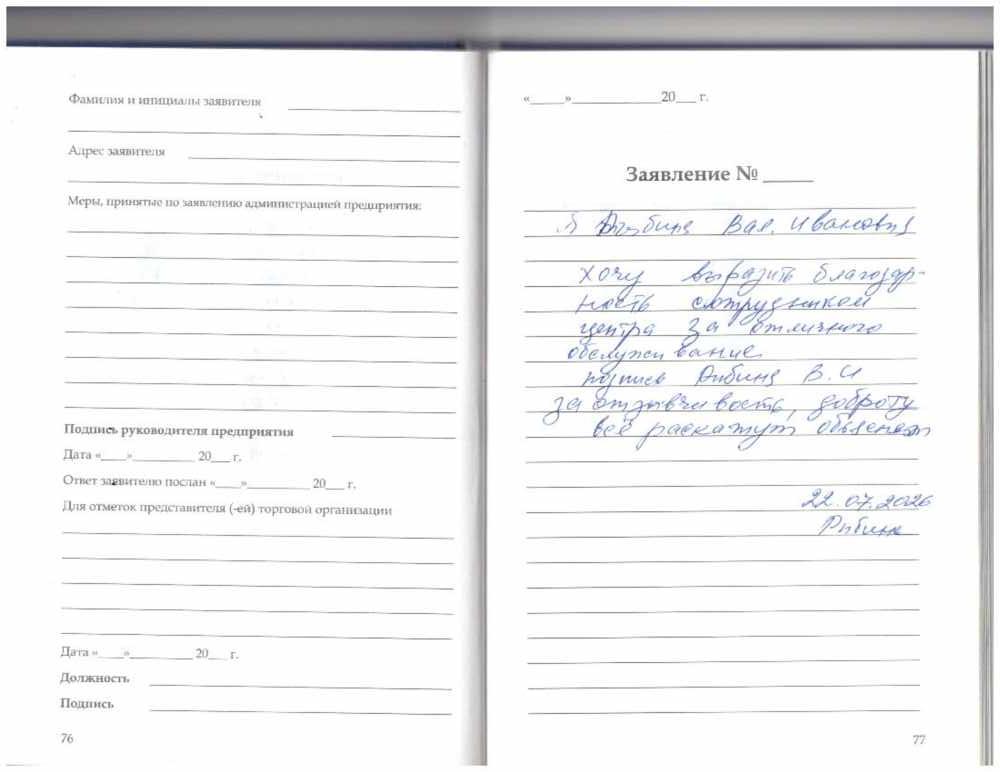 Фамилия и инициалы заявителя
Адрес заявителя
Меры, принятые по заявлению администрацией предприятия:
Подпись руководителя предприятия
Дата «____»__________ 20___ г.
Ответ заявителю послан «____»__________ 20___ г.
Для отметок представителя (-ей) торговой организации
Дата «____»__________ 20___ г.
Должность
Подпись
76
«_____»______________20___ г.
Заявление № _____
Я Вал. Ивановна
хочу выразить благодар-
ность сотрудником
центра за отличного
обслуживание
подпись В. И
за отзывчивость, доброту
всё раскажут
22.07.2026
77